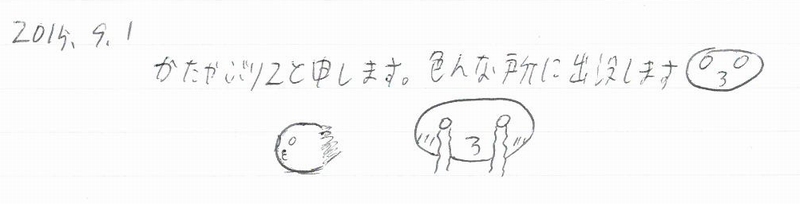 2015. 9. 1
かたやぶり2と申します。色んな所に出没します